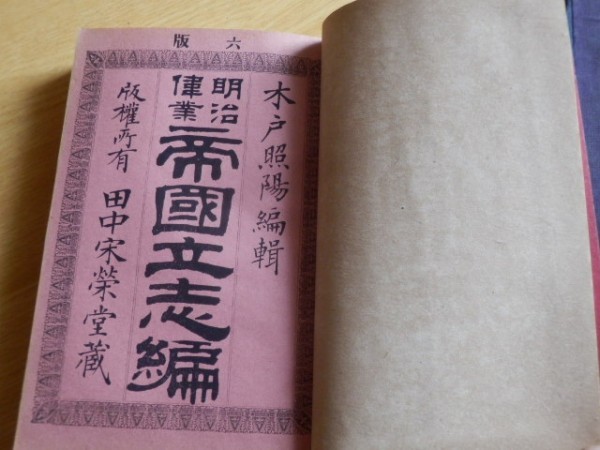 六版
木戸照陽編輯
明治
偉業
帝國立志編
版權所有
田中宋榮堂藏